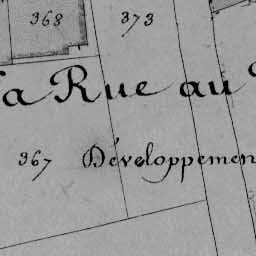 368 373
la Rue au
367 Développemen